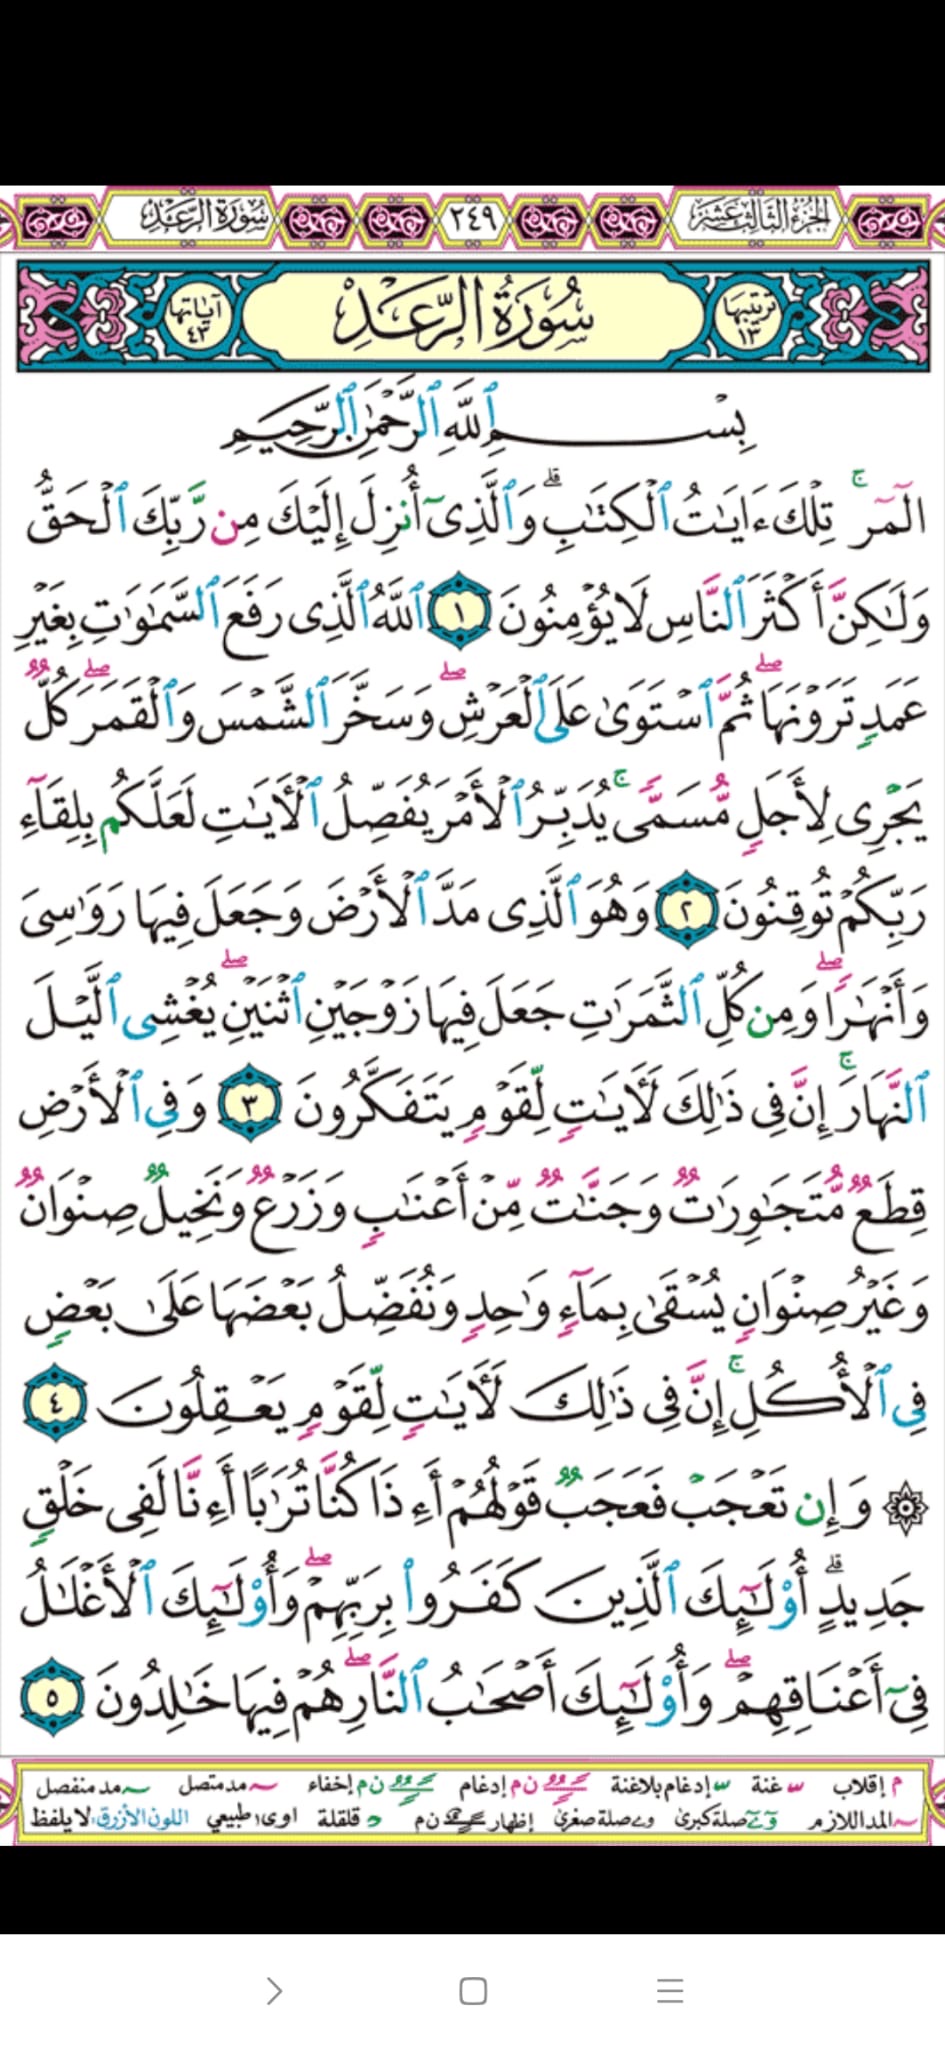 الجزء الثالث عشر ٢٤٩ سورة الرعد
ترتيبها ١٣ سُورَةُ الرَّعْدِ آياتها ٤٣
بِسْمِ ٱللَّهِ ٱلرَّحْمَٰنِ ٱلرَّحِيمِ
الٓمٓرۚ تِلْكَ ءَايَٰتُ ٱلْكِتَٰبِۗ وَٱلَّذِىٓ أُنزِلَ إِلَيْكَ مِن رَّبِّكَ ٱلْحَقُّ
وَلَٰكِنَّ أَكْثَرَ ٱلنَّاسِ لَا يُؤْمِنُونَ ١ ٱللَّهُ ٱلَّذِى رَفَعَ ٱلسَّمَٰوَٰتِ بِغَيْرِ
عَمَدٍ تَرَوْنَهَاۖ ثُمَّ ٱسْتَوَىٰ عَلَى ٱلْعَرْشِۖ وَسَخَّرَ ٱلشَّمْسَ وَٱلْقَمَرَۖ كُلٌّ
يَجْرِى لِأَجَلٍ مُّسَمًّىۚ يُدَبِّرُ ٱلْأَمْرَ يُفَصِّلُ ٱلْأَيَٰتِ لَعَلَّكُم بِلِقَآءِ
رَبِّكُمْ تُوقِنُونَ ٢ وَهُوَ ٱلَّذِى مَدَّ ٱلْأَرْضَ وَجَعَلَ فِيهَا رَوَٰسِىَ
وَأَنْهَٰرًاۖ وَمِن كُلِّ ٱلثَّمَرَٰتِ جَعَلَ فِيهَا زَوْجَيْنِ ٱثْنَيْنِۖ يُغْشِى ٱلَّيْلَ
ٱلنَّهَارَۚ إِنَّ فِى ذَٰلِكَ لَأَيَٰتٍ لِّقَوْمٍ يَتَفَكَّرُونَ ٣ وَفِى ٱلْأَرْضِ
قِطَعٌ مُّتَجَٰوِرَٰتٌ وَجَنَّٰتٌ مِّنْ أَعْنَٰبٍ وَزَرْعٌ وَنَخِيلٌ صِنْوَانٌ
وَغَيْرُ صِنْوَانٍ يُسْقَىٰ بِمَآءٍ وَٰحِدٍ وَنُفَضِّلُ بَعْضَهَا عَلَىٰ بَعْضٍ
فِى ٱلْأُكُلِۚ إِنَّ فِى ذَٰلِكَ لَأَيَٰتٍ لِّقَوْمٍ يَعْقِلُونَ ٤
۞ وَإِن تَعْجَبْ فَعَجَبٌ قَوْلُهُمْ أَءِذَا كُنَّا تُرَٰبًا أَءِنَّا لَفِى خَلْقٍ
جَدِيدٍۗ أُو۟لَٰٓئِكَ ٱلَّذِينَ كَفَرُوا۟ بِرَبِّهِمْۖ وَأُو۟لَٰٓئِكَ ٱلْأَغْلَٰلُ
فِىٓ أَعْنَاقِهِمْۖ وَأُو۟لَٰٓئِكَ أَصْحَٰبُ ٱلنَّارِۖ هُمْ فِيهَا خَٰلِدُونَ ٥
م إقلاب غنة إدغام بلاغنة ن م إدغام ن م إخفاء مد متصل مد منفصل
المد اللازم صلة كبرى صلة صغرى إظهار ن م قلقلة اوى طبيعي اللون الأزرق: لا يلفظ